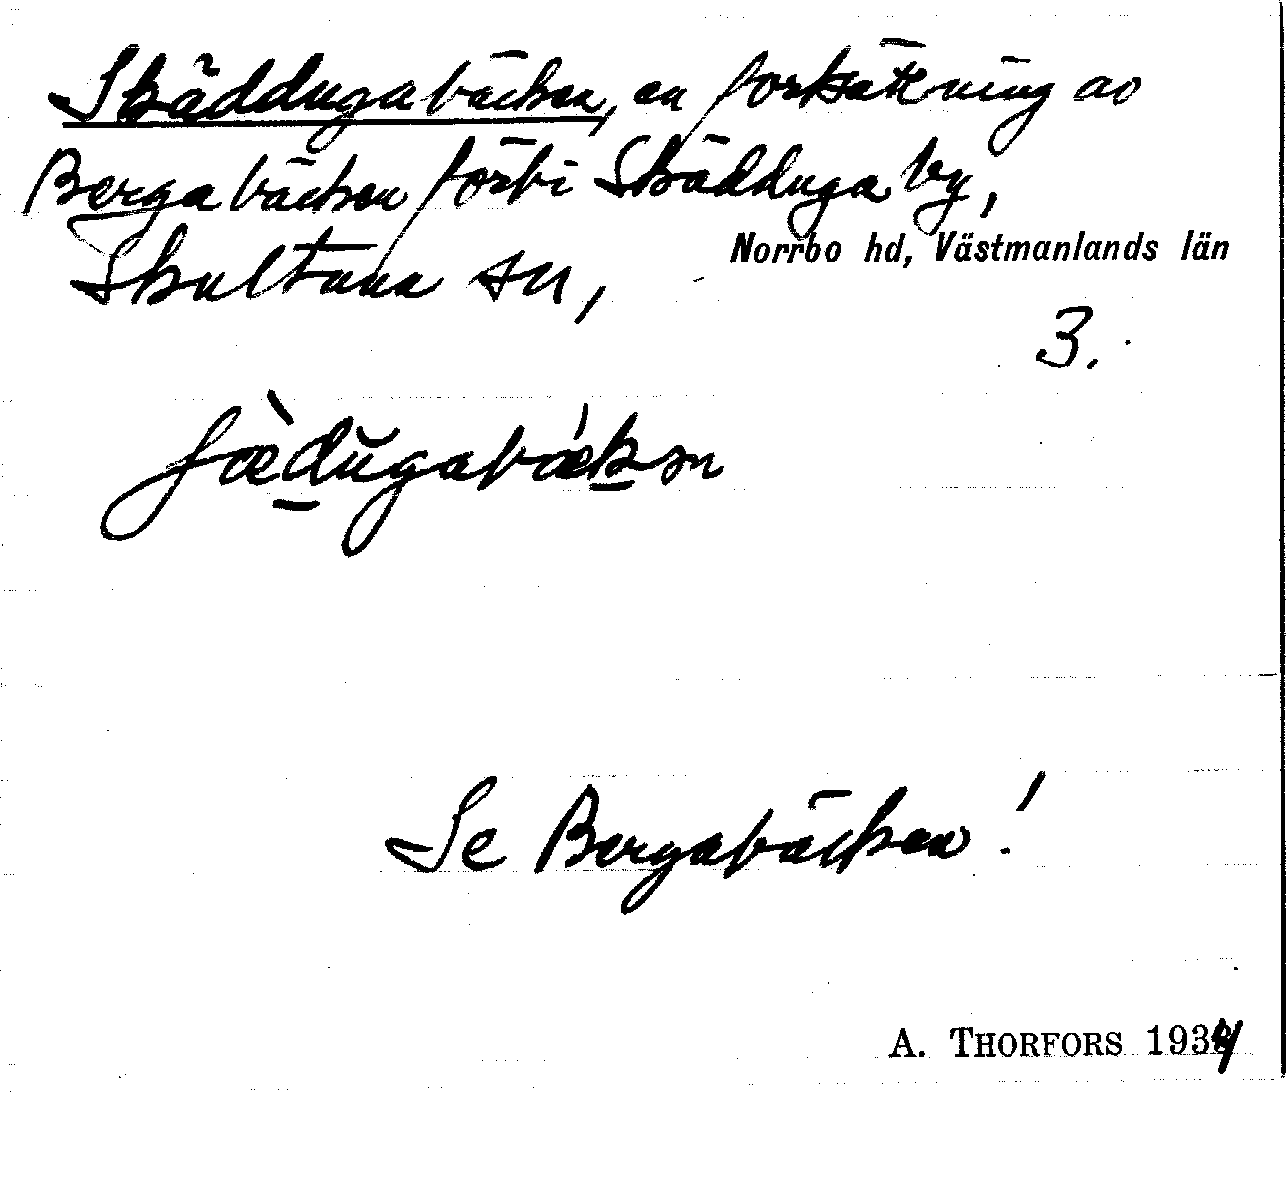 Skäddugabäcken, en fortsättning av
Bergabäcken förbi Skädduga by,
Skultuna sn, Norrbo hd, Västmanlands län
3.
Se Bergabäcken!
A. THORFORS 1934